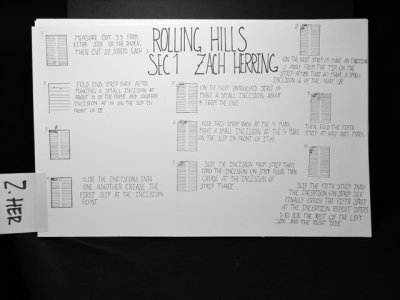 ROLLING HILLS
SEC 1 ZACH HERRING
MEASURE OUT 3.5 FROM
EITHER SIDE OF THE PAPER,
THEN CUT 22 STRIPS EACH
FOLD END STRIP BACK AFTER
MAKING A SMALL INCISION AT
OF THE PAPER, AND ANOTHER
INCISION AT ON THE SLIP IN
FRONT OF IT
SLIDE THE INCISIONS INTO
ONE ANOTHER CREASE THE
FIRST SLIP AT THE INCISION
POINT
ON THE NEXT UNTOUCHED STRIP
MAKE A SMALL INCISION ABOUT
FROM THE END
FOLD THIS STRIP BACK AT THE MARK,
MAKE A SMALL INCISION AT THE MARK
ON THE SLIP IN FRONT OF
SLIP THE INCISION FROM STRIP THREE
INTO THE INCISION ON STRIP FOUR, THEN
CREASE AT THE INCISION OF
STRIP THREE
ON THE NEXT STRIP MAKE AN INCISION
AWAY FROM THE TIP ON THE
STRIP AFTER THAT MAKE A SMALL
INCISION OF THE WAY UP
THEN FOLD THE FIFTH
STRIP AT HALF WAY MARK
SLIP THE FIFTH STRIP INTO
THE INCEPTION ON STRIP SIX
FINALLY CREASE THE FIFTH STRIP
AT THE INCEPTION REPEAT STEPS
1-10 FOR THE REST OF THE LEFT
SIDE AND THE RIGHT SIDE
Z. HER